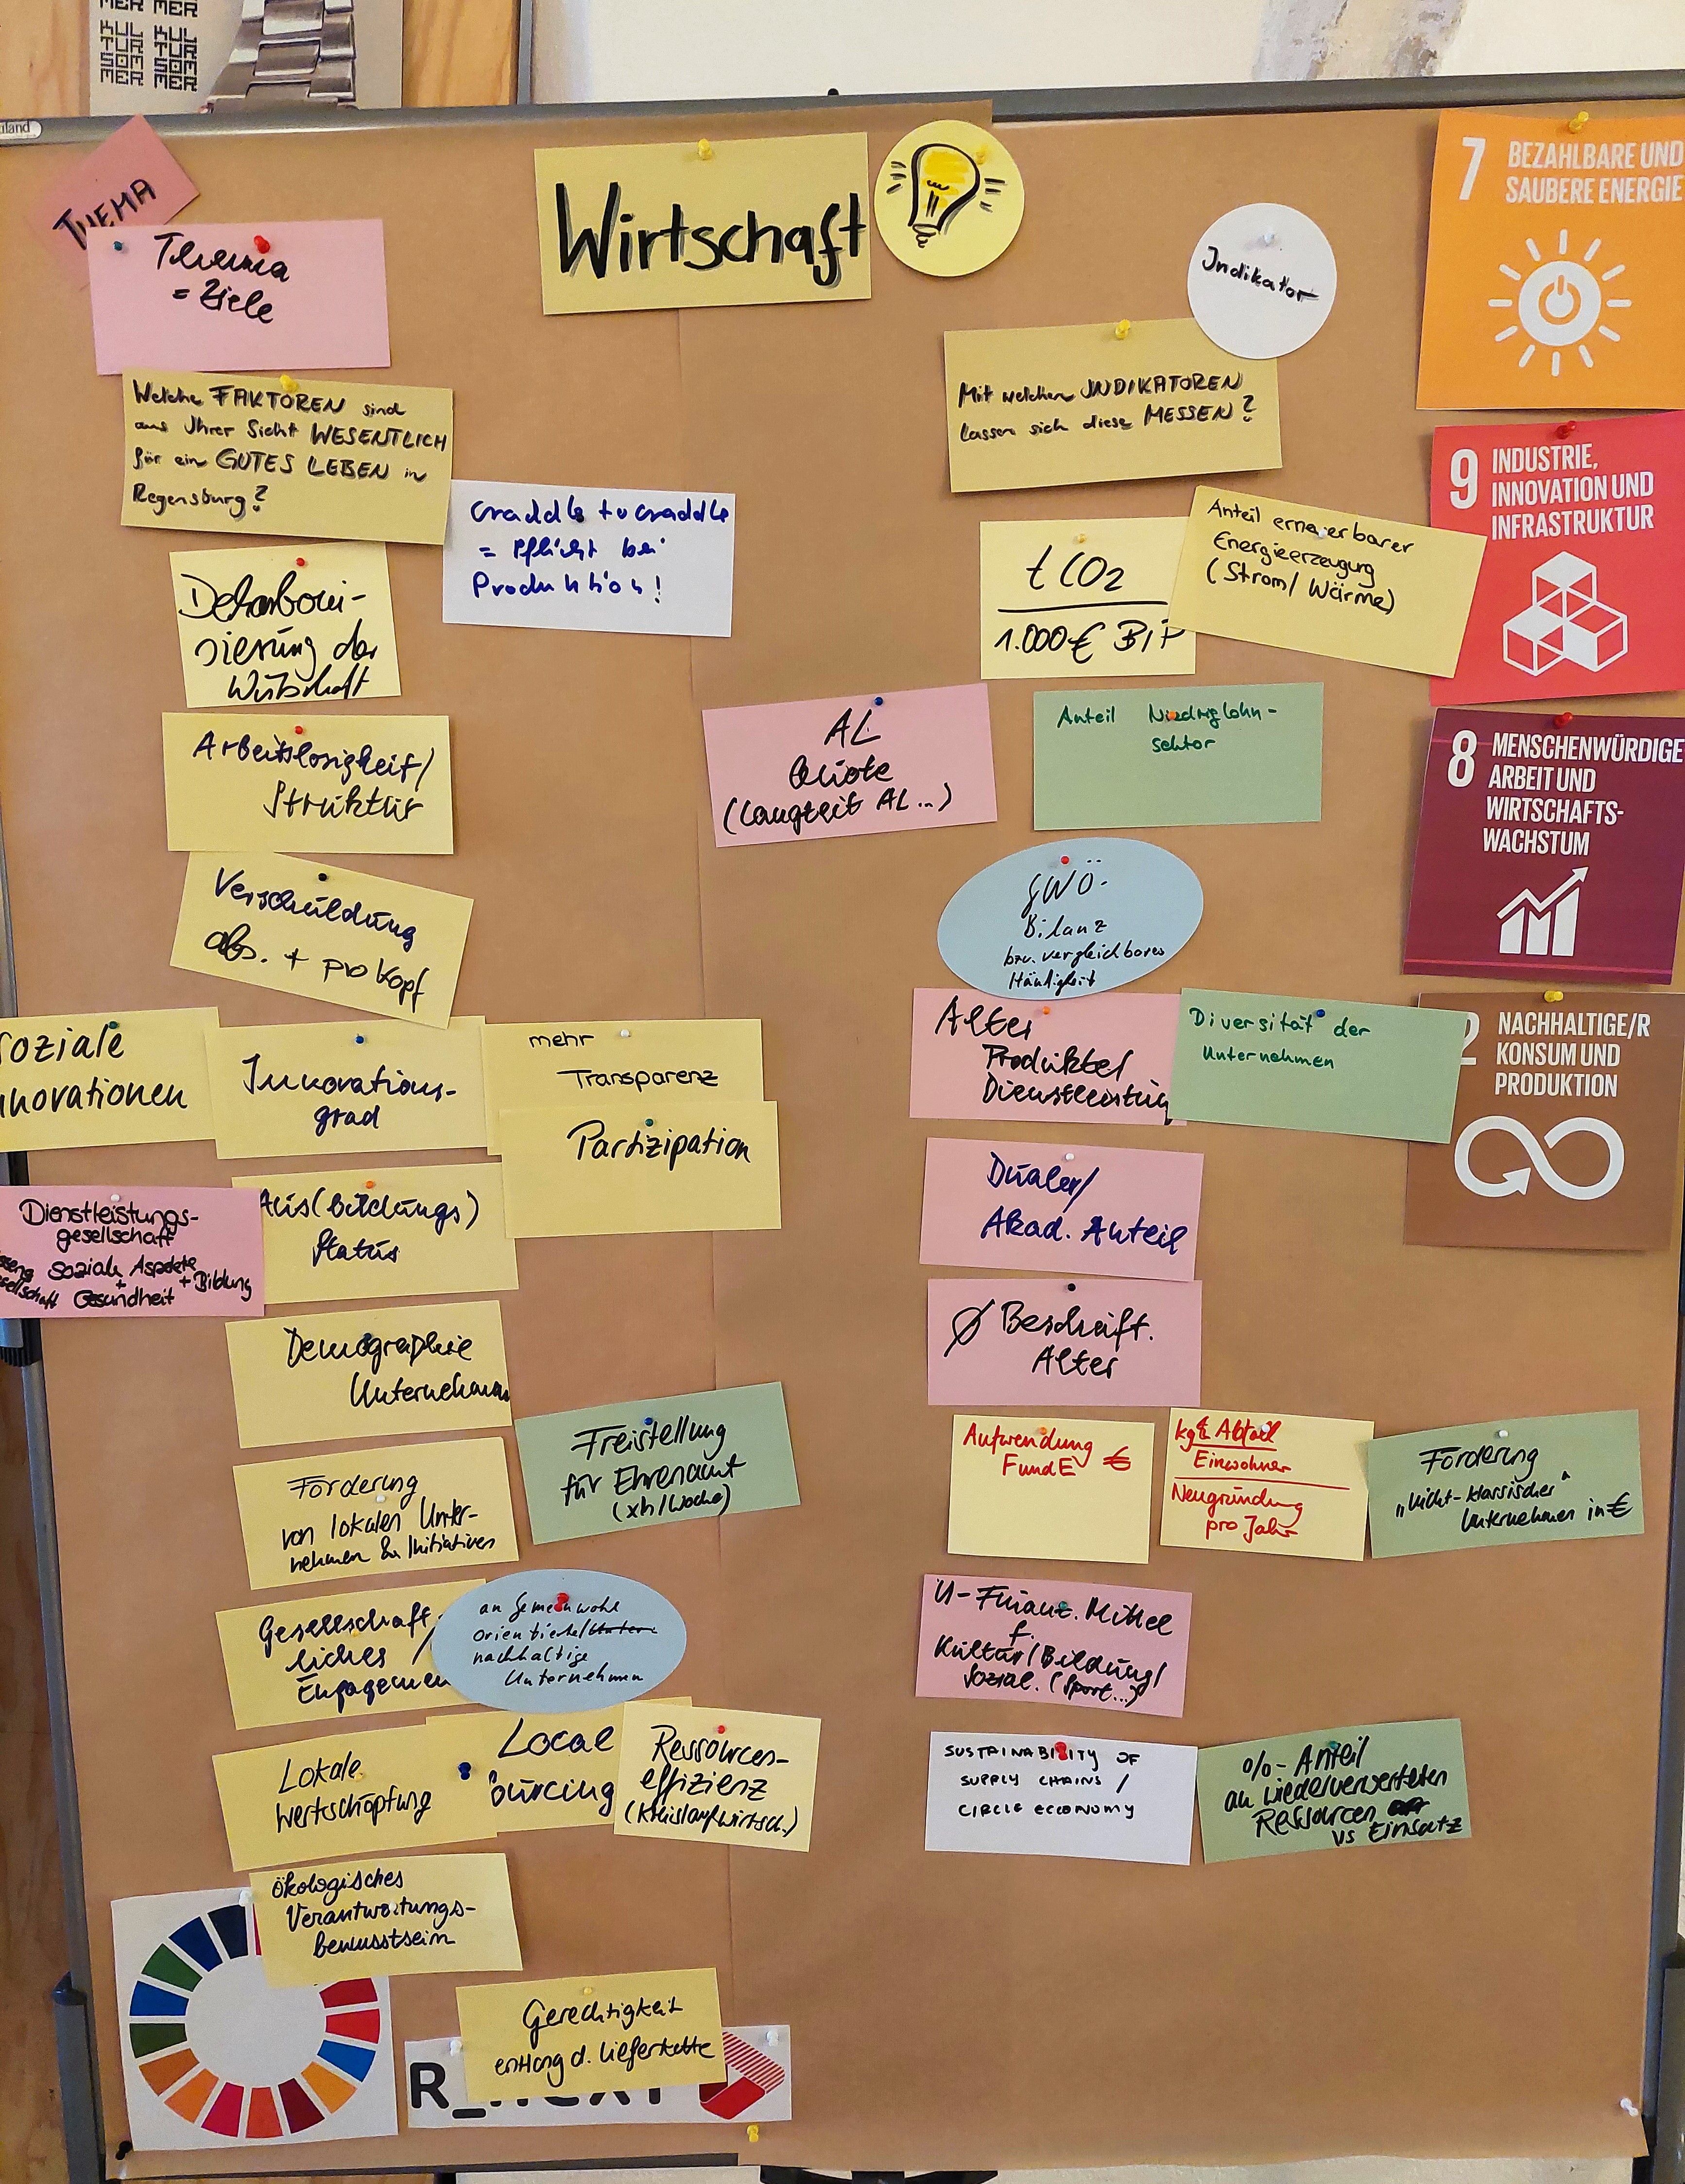 THEMA
Thema
= Ziele
Wirtschaft
Indikator
Welche FAKTOREN sind
aus Ihrer Sicht WESENTLICH
für ein GUTES LEBEN in
Regensburg?
Mit welchen INDIKATOREN
lassen sich diese MESSEN?
craddle to craddle
= Pflicht bei
Produktion!
Dekarboni-
sierung der
Wirtschaft
tCO2
1.000€ BIP
Anteil erneuerbarer
Energieerzeugung
(Strom/ Wärme)
Arbeitslosigkeit/
Struktur
AL
Quote
(Langzeit AL...)
Anteil Niedriglohn-
sektor
Verschuldung
abs. + pro Kopf
GWÖ-
Bilanz
bzw. vergleichbares
soziale
nnovationen
Innovations-
grad
mehr
Transparenz
Partizipation
Alter
Produkte/
Dienstleistung
Diversität der
Unternehmen
Dienstleistungs-
gesellschaft
Soziale Aspekte
+ + Bildung
Gesundheit
Aus(bildungs)
status
Dualer/
Akad. Anteil
Demographie
Unternehmen
Ø Beschäft.
Alter
Förderung
von lokalen Unter-
nehmen & Initiativen
Freistellung
für Ehrenamt
(xh/Woche)
Aufwendung
FundE €
Einwohner
Neugründung
pro Jahr
Förderung
„nicht-klassischer"
Unternehmen in €
Gesellschaft-
liches /
Engagemen
an Gemeinwohl
orientierte/
nachhaltige
Unternehmen
U-Finanz. Mittel
f.
Kultur/Bildung/
Sozial. (Sport...)
Lokale
Wertschöpfung
Local
ourcing
Ressourcen-
effizienz
(Kreislaufwirtsch.)
SUSTAINABILITY OF
SUPPLY CHAINS /
CIRCLE ECCONOMY
%-Anteil
an wiederverwerteten
Ressourcen
vs Einsatz
ökologisches
Verantwortungs-
bewusstsein
Gerechtigkeit
entlang d. Lieferkette
R_NEXT
7 BEZAHLBARE UND
SAUBERE ENERGIE
9 INDUSTRIE,
INNOVATION UND
INFRASTRUKTUR
8 MENSCHENWÜRDIGE
ARBEIT UND
WIRTSCHAFTS-
WACHSTUM
2 NACHHALTIGE/R
KONSUM UND
PRODUKTION